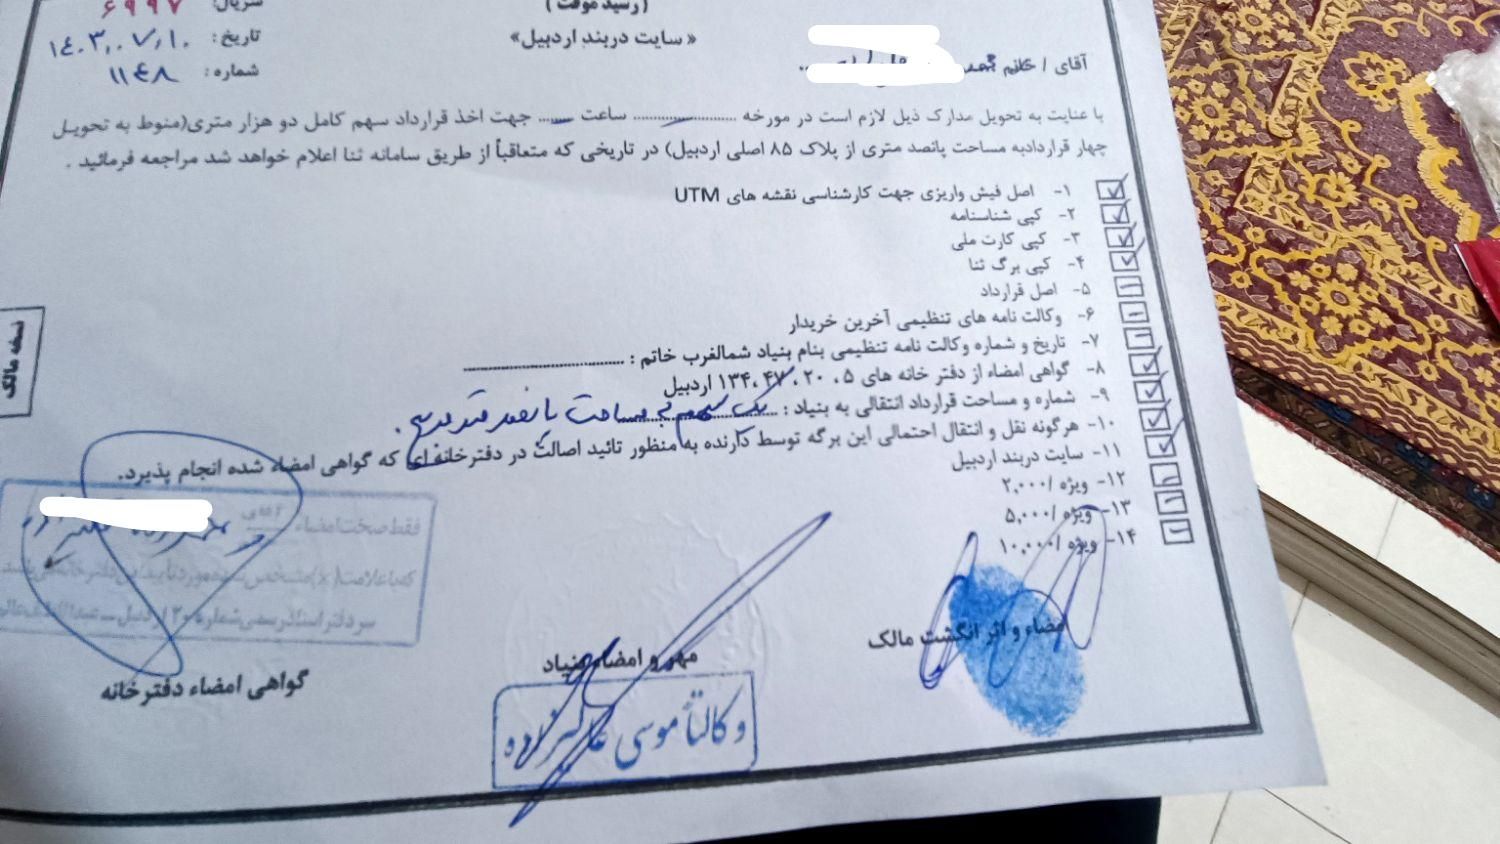 (رسید موقت)
سریال: ۶۹۹۷
«سایت دربند اردبیل»
تاریخ: ۱۴۰۳،۰۷،۱۰
شماره: ۱۱۴۸
آقای / خانم
با عنایت به تحویل مدارک ذیل لازم است در مورخه ............ ساعت ...... جهت اخذ قرارداد سهم کامل دو هزار متری(منوط به تحویل
چهار قراردادبه مساحت پانصد متری از پلاک ۸۵ اصلی اردبیل) در تاریخی که متعاقباً از طریق سامانه ثنا اعلام خواهد شد مراجعه فرمائید .
۱- اصل فیش واریزی جهت کارشناسی نقشه های UTM
۲- کپی شناسنامه
۳- کپی کارت ملی
۴- کپی برگ ثنا
۵- اصل قرارداد
۶- وکالت نامه های تنظیمی آخرین خریدار
۷- تاریخ و شماره وکالت نامه تنظیمی بنام بنیاد شمالغرب خاتم : ..............................
۸- گواهی امضاء از دفتر خانه های ۵، ۲۰، ۴۷، ۱۳۴ اردبیل
۹- شماره و مساحت قرارداد انتقالی به بنیاد : یک سهم به مساحت پانصد متر مربع .
۱۰- هرگونه نقل و انتقال احتمالی این برگه توسط دارنده به منظور تائید اصالت در دفترخانه ای که گواهی امضاء شده انجام پذیرد.
۱۱- سایت دربند اردبیل
۱۲- ویژه /۲,۰۰۰
۱۳- ویژه /۵,۰۰۰
۱۴- ویژه /۱۰,۰۰۰
نسخه مالک
فقط صحت امضاء آقای
که با علامت (×) مشخص شده مورد تایید این دفترخانه می باشد
سردفتر اسناد رسمی شماره ۲۰ اردبیل
امضاء و اثر انگشت مالک
مهر و امضاء بنیاد
گواهی امضاء دفترخانه
وکالتاً موسی عالیزاده